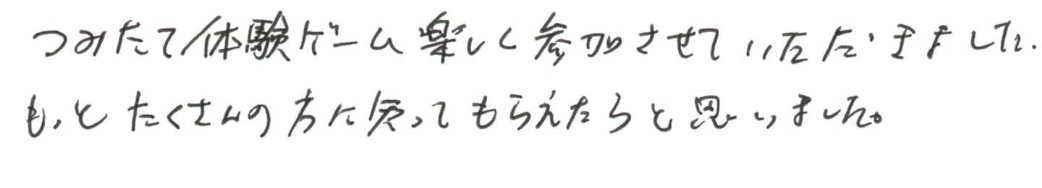 つみたて体験ゲーム楽しく参加させていただきました.
もっとたくさんの方に使ってもらえたらと思いました。